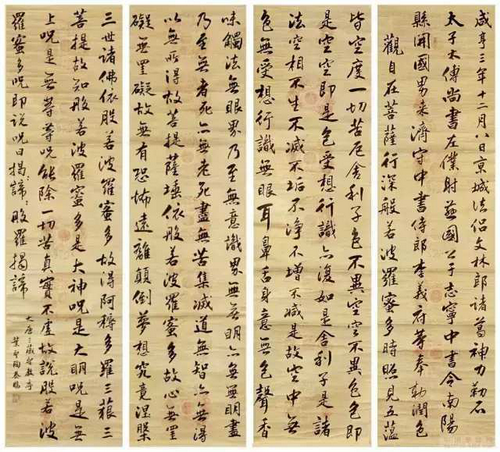 咸亨三年十二月八日京城法侶文林郎諸葛神力勒石
太子太傅尚書左僕射燕國公于志寧中書令南陽
縣開國男來濟守中書侍郎李義府等奉勅潤色
觀自在菩薩行深般若波羅蜜多時照見五蘊
皆空度一切苦厄舍利子色不異空空不異色色即
是空空即是色受想行識亦復如是舍利子是諸
法空相不生不滅不垢不淨不增不減是故空中無
色無受想行識無眼耳鼻舌身意無色聲香
味觸法無眼界乃至無意識界無無明亦無無明盡
乃至無老死亦無老死盡無苦集滅道無智亦無得
以無所得故菩提薩埵依般若波羅蜜多故心無罣
礙無罣礙故無有恐怖遠離顛倒夢想究竟涅槃
三世諸佛依般若波羅蜜多故得阿耨多羅三藐三
菩提故知般若波羅蜜多是大神呪是大明呪是無
上呪是無等等呪能除一切苦真實不虛故說般若波
羅蜜多呪即說呪曰揭諦般羅揭諦
大唐三藏聖教序